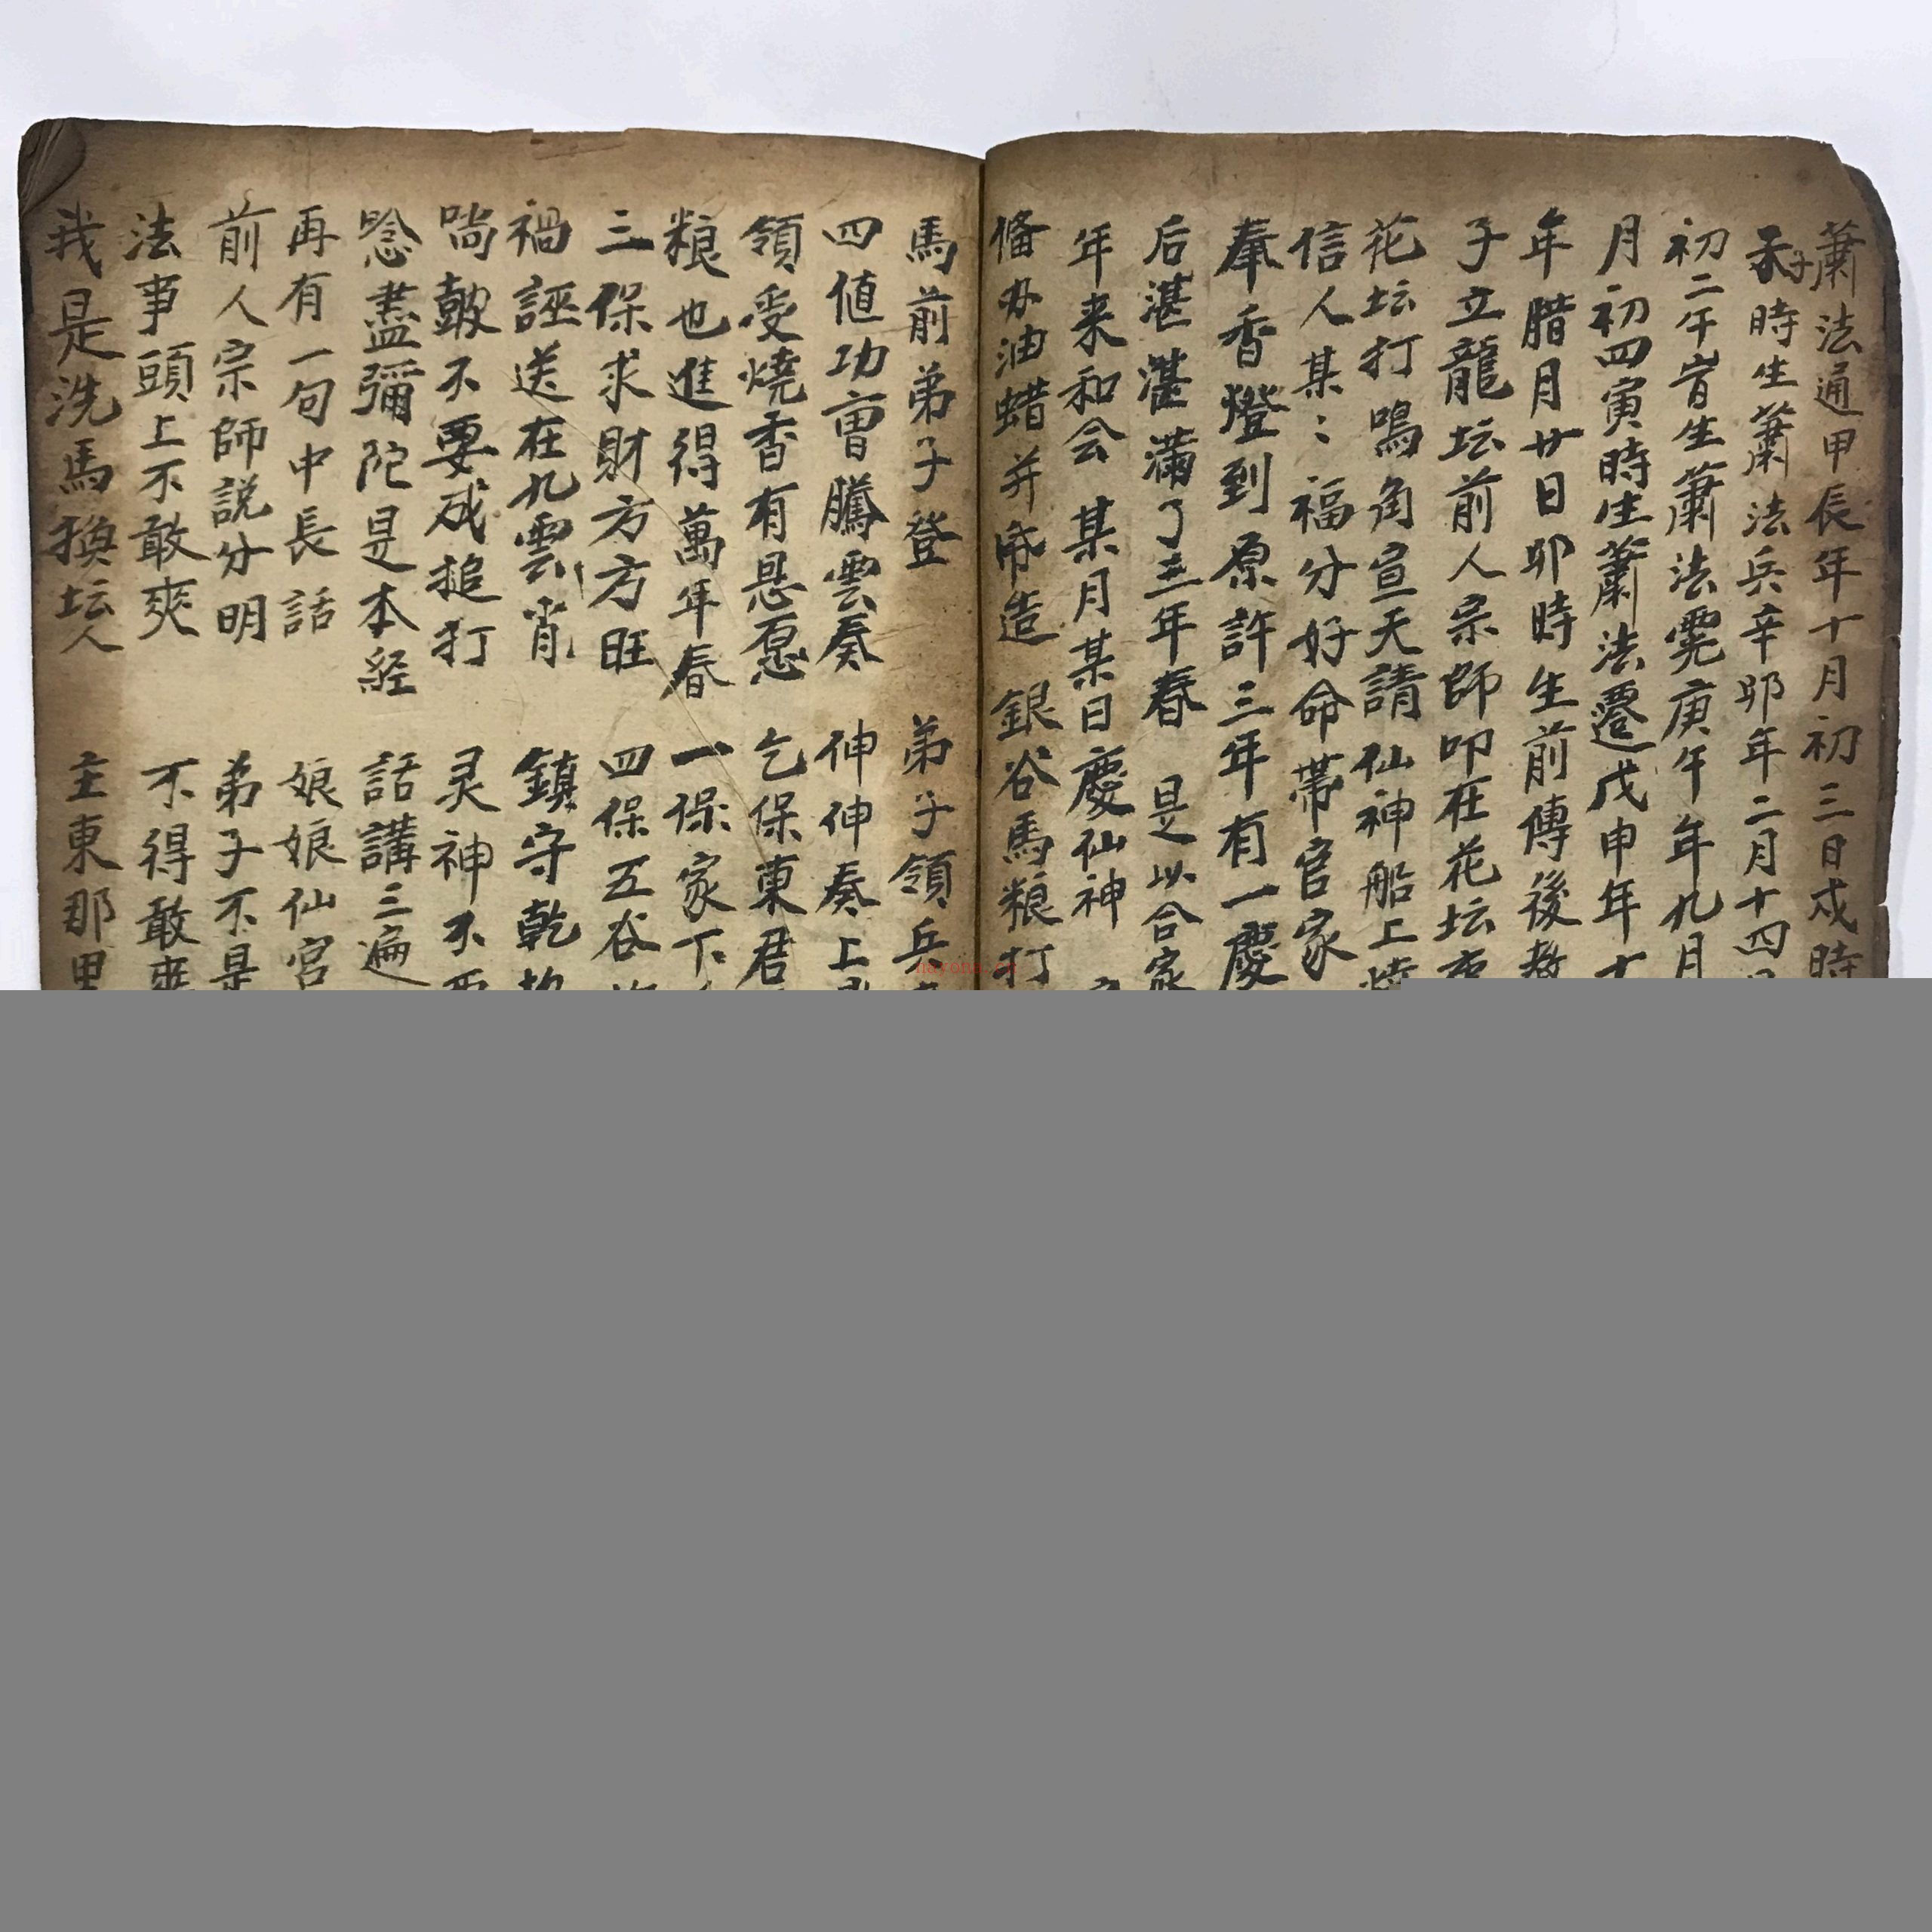 蕭法通甲辰年十月初三日戌時
子時生蕭法兵辛卯年二月十四
初二午時生蕭法霓庚午年九月
月初四寅時生蕭法遷戊申年十
年腊月廿日卯時生前傳後教
子立龍坛前人宗師叩在花坛
花坛打鳴角宣天請仙神船上
信人某〻福分好命帶官家
奉香燈到原許三年有一慶
后湛湛滿了三年春 是以合家
年来和会某月某日慶仙神
俻办油蜡并布造銀谷馬粮打
馬前弟子登 弟子領兵
四值功曹騰雲奏 伸伸奏上
領受燒香有恳愿 乞保東君
粮也進得萬年春 一保家下
三保求財方方旺 四保五谷
禍誣送在九雲霄 鎮守乾
啇皷不要成搥打 灵神不要
唸盡彌陀是本経 話講三遍
再有一句中長話 娘娘仙宮
前人宗師説分明 弟子不是
法事頭上不敢爽 不得敢來
我是洗馬換坛人 主東那里